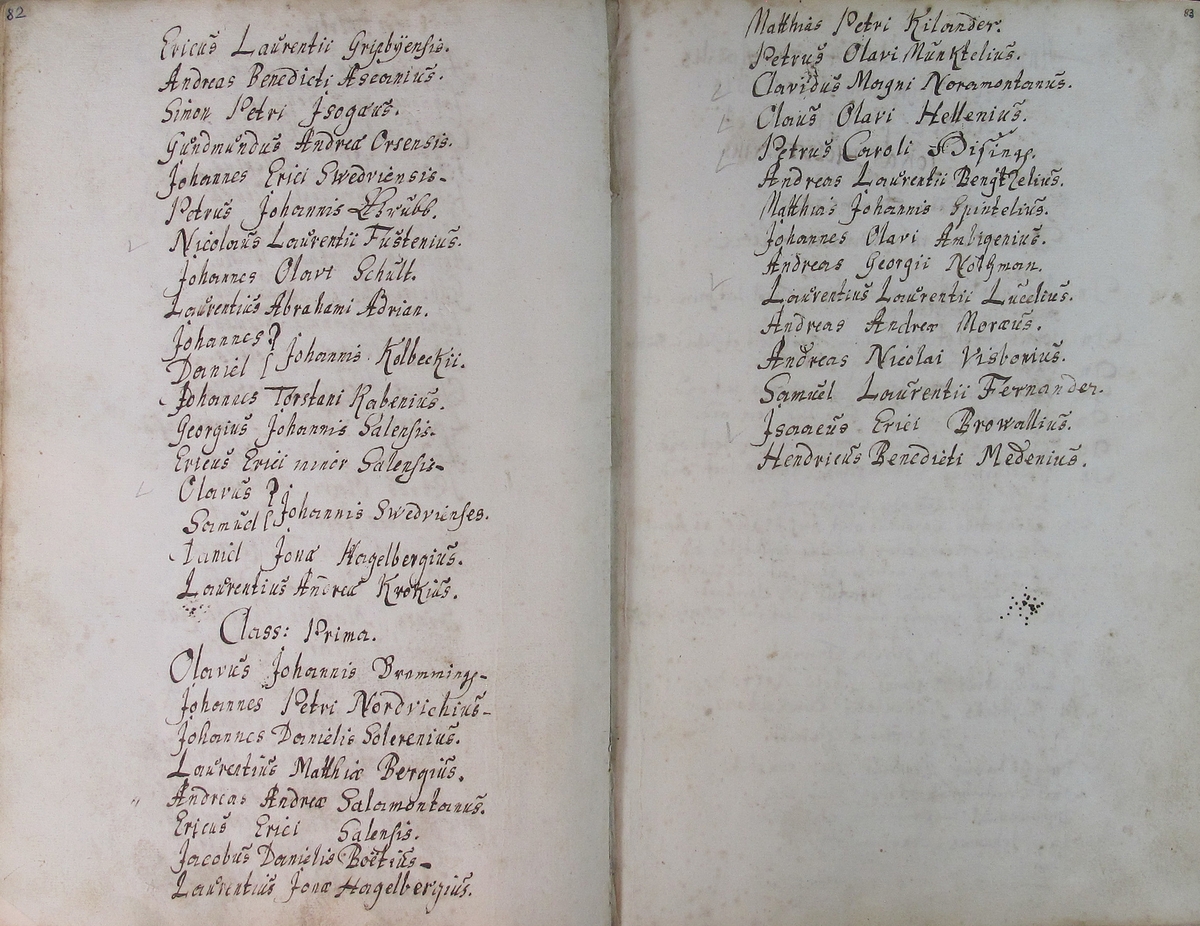 82
Ericus Laurentii Gripbyensis.
Andreas Benedicti Ascanius.
Simon Petri Isogæus.
Gudmundus Andreæ Orsensis.
Johannes Erici Swedviensis-
Petrus Johannis Skrubb.
Nicolaus Laurentii Fustenius.
Johannes Olavi Schult.
Laurentius Abrahami Adrian.
Johannes
Daniel Johannis Kolbeckii.
Johannes Torstani Rabenius.
Georgius Johannis Salensis-
Ericus Erici minor Salensis-
Olavus
Samuel Johannis Swedvienses.
Daniel Jonæ Hagelbergius.
Laurentius Andreæ Krokius.
Class: Prima.
Olavus Johannis
Johannes Petri Nordvichius-
Johannes Danielis Solerenius.
Laurentius Matthiæ Bergius.
Andreas Andreæ Salamontanus.
Ericus Erici Salensis.
Jacobus Danielis Boëtius-
Laurentius Jonæ Hagelbergius.
83
Matthias Petri Kilander.
Petrus Olavi Munktelius.
Magni Noramontanus.
Claus Olavi Hellenius.
Petrus Caroli
Andreas Laurentii Bengtzelius.
Matthias Johannis Spintelius.
Johannes Olavi
Andreas Georgii Nothman.
Laurentius Laurentii Lucelius.
Andreas Andreæ Moræus.
Andreas Nicolai Visborius.
Samuel Laurentii Fernander.
Isaacus Erici Browallius.
Hendricus Benedicti Medenius.